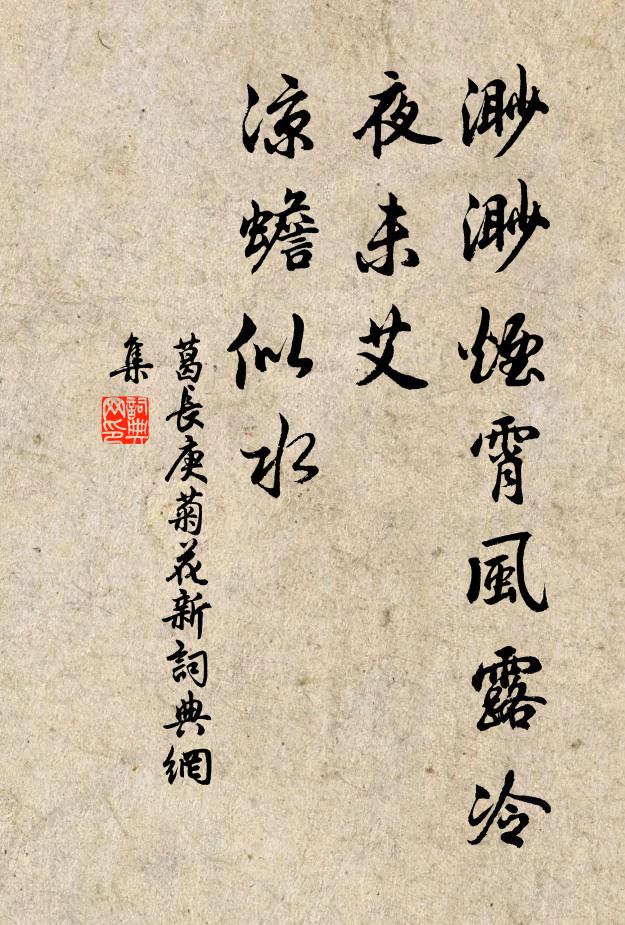 渺渺煙霄風露冷
夜未艾
涼蟾似水
葛長庚菊花新詞典網
集
詞典网印